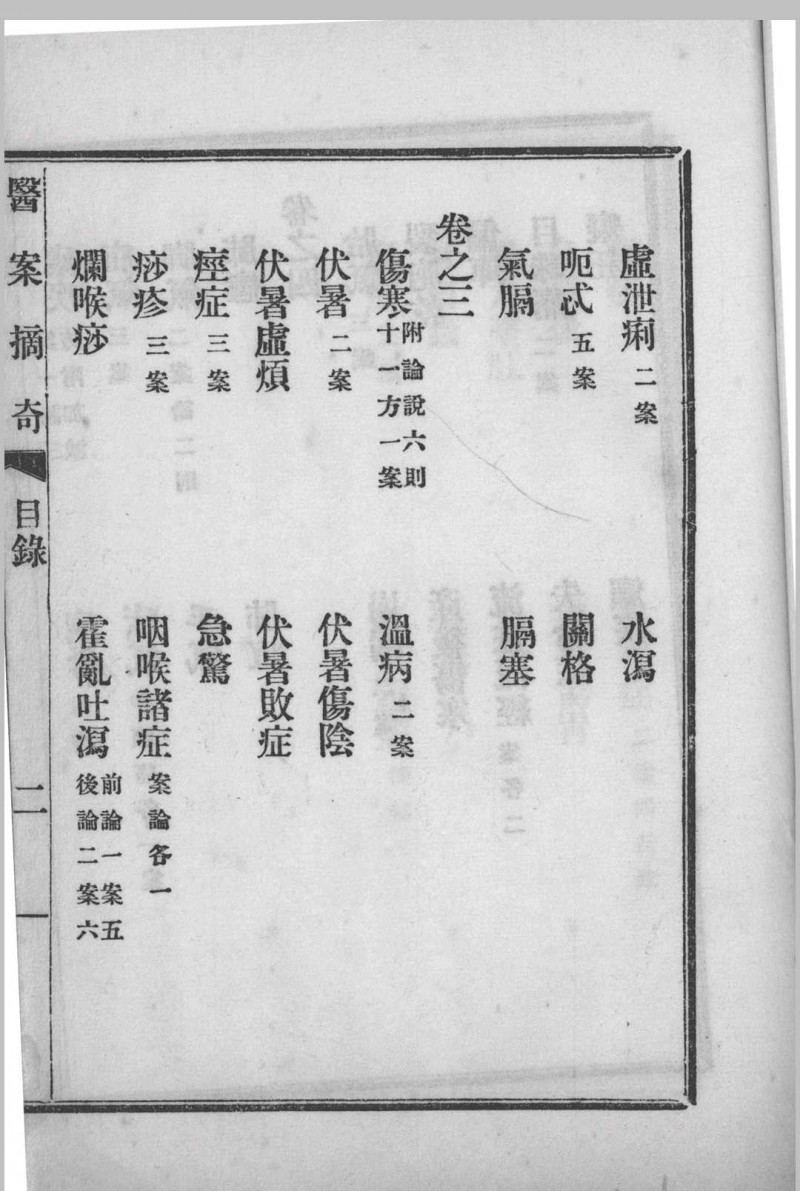 虛泄痢二案　水瀉
呃忒五案　關格
氣膈　膈塞
卷之三
傷寒附論說六則十一方一案　溫病二案
伏暑二案　伏暑傷陰
伏暑虛煩　伏暑敗症
痙症三案　急驚
痧疹三案　咽喉諸症案論各一
爛喉痧　霍亂吐瀉前論一案五後論二案六
醫案摘奇　目錄　二　一